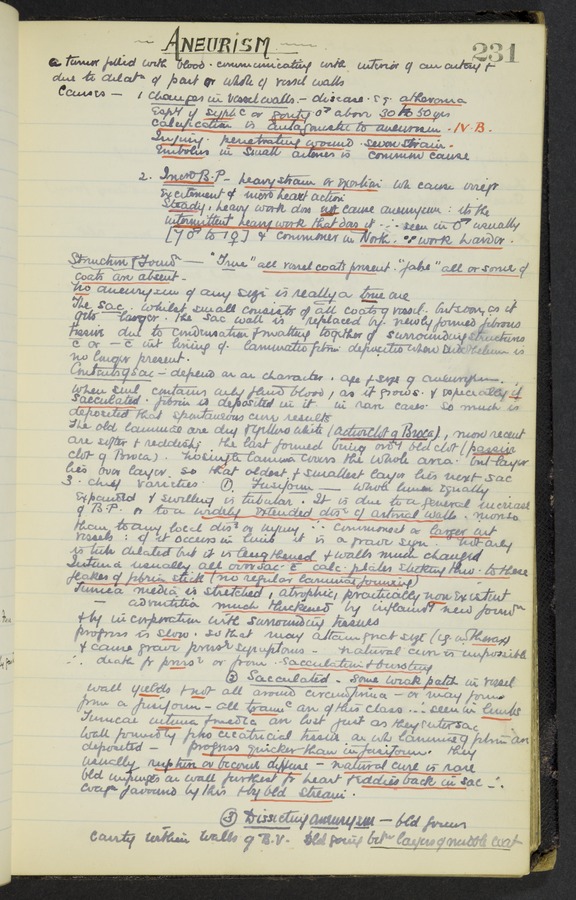 ANEURISM
231
a tumor filled with blood communicating with interior of an artery &
due to dilatn of part or whole of vessel walls
Causes — 1 changes in vessel walls - disease. eg. atheroma
Esply if syphc or gouty ♂ above 30 to 50 yrs
Calcification is antagonistic to aneurism. N.B.
Injury. penetrating wound. severe strain.
Embolus in small arteries is common cause
2. Incrd B.P - heavy strain or exertion
Excitement & incrd heart action
Steady, heavy work does not cause aneurysm: its the
intermittent heavy work that does it ∴ seen in ♂ usually
[7♂ to 1♀] & commoner in North. ∵ work harder.
Structure & Found — "True" all vessel coats present. "false" all or some of
coats are absent -
no aneurysm of any size is really a true one
The sac, whilst small consists of all coats of vessel. but soon as it
gets larger. the sac wall is replaced by newly formed fibrous
tissue due to condensation & matting together of surrounding structures
c̄ or - c̄ int lining of laminated fibrin deposited when endothelium is
no longer present.
Contents of sac - depend on character, age & size of aneurysm.
when small contains only fluid blood, as it grows & especially if
sacculated. fibrin is deposited in it in rare cases so much is
deposited that spontaneous cure results
The old laminae are dry & yellow white (active clot of Broca), more recent
are softer & reddish, the last formed being ordy bld clot (passive
clot of Broca). No single lamina covers the whole area. but layer
lies over layer. so that oldest & smallest layer lies next sac
3. chief varieties ① Fusiform — whole lumen equally
expanded & swelling is tubular. It is due to a general increase
of B.P. or to a widely extended dis: of arterial walls. more so
than to any local dis: or injury ∴ commonest in larger art
vessels: if it occurs in limb it is a grave sign. Not only
is tube dilated but it is lengthened & walls much changed
Intima usually all over sac. c̄ calc. plates sticking thro. to these
flakes of fibrin stick (no regular laminae forming)
Tunica media is stretched, atrophic, practically non existent
— adventitia much thickened by inflamd new formn
& by incorporation with surrounding tissues
progress is slow. so that may attain great size (eg in Thorax)
& cause grave pressr symptoms - natural cure is impossible
∴ death fr pressr or from sacculation & bursting
② Sacculated - some weak patch in vessel
wall yields & not all around circumference - or may form
from a fusiform - all traumc an of this class ∴ seen in limbs
Tunicae intima & media are lost just as they enter sac
wall formed by cicatricial tissue on wh laminae of fibrin are
deposited - progress quicker than in fusiform. they
usually rupture or become diffuse - natural cure is rare
bld impinges on wall furthest fr heart & eddies back in sac ∴
coagn favoured by this & by bld stream.
③ Dissecting aneurysm — bld forms
cavity within walls of B.V. Bld going betn layers of middle coat